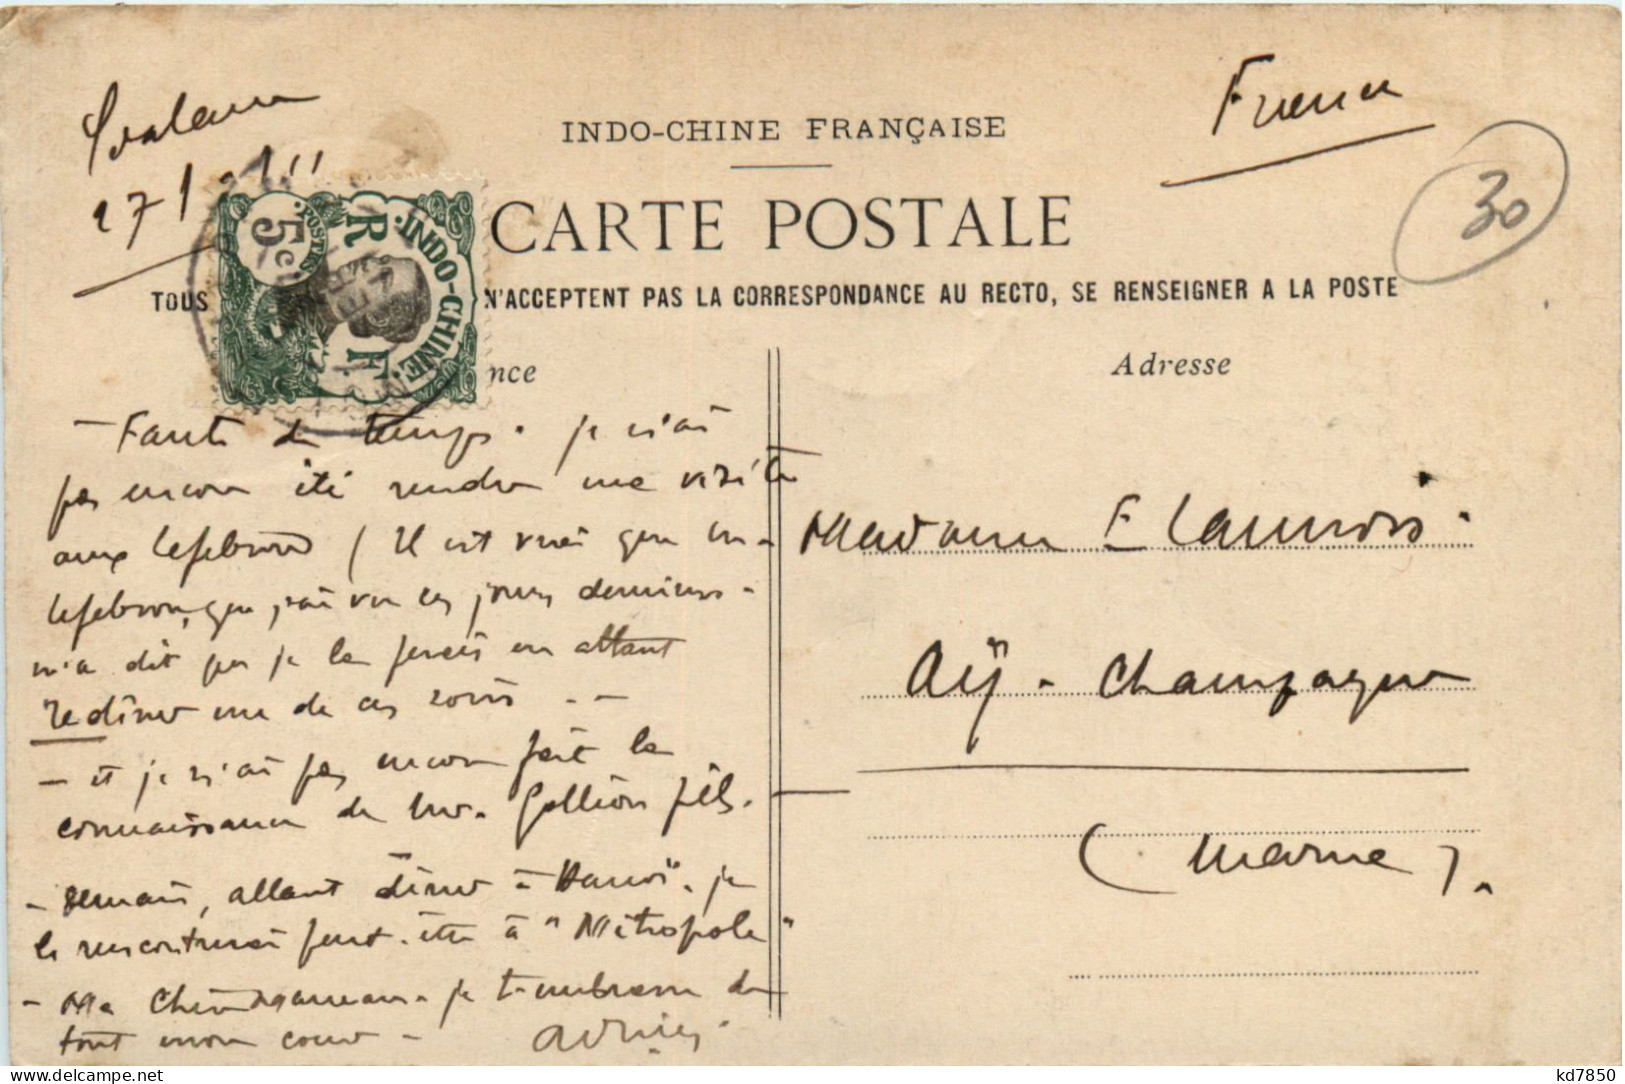 27-1-11
France
INDO-CHINE FRANÇAISE
30
CARTE POSTALE
INDO-CHINE
R F
POSTES
5c
TOUS N'ACCEPTENT PAS LA CORRESPONDANCE AU RECTO, SE RENSEIGNER A LA POSTE
nce
Adresse
- Faute de temps. je n'ai
pas encore été rendre une visite
aux Lefebvre (Il est vrai que M.
Lefebvre, que j'ai vu ces jours derniers -
m'a dit que je le ferais en allant
redîner un de ces soirs . -
- et je n'ai pas encore fait la
connaissance de Mr. Gallion fils. -
- demain, allant dîner à Hanoï. je
le rencontrerai peut-être à "Métropole"
- Ma chère maman. je t'embrasse de
tout mon cœur -
Madame E Launois.
Aÿ - Champagne
(Marne).
kd7850